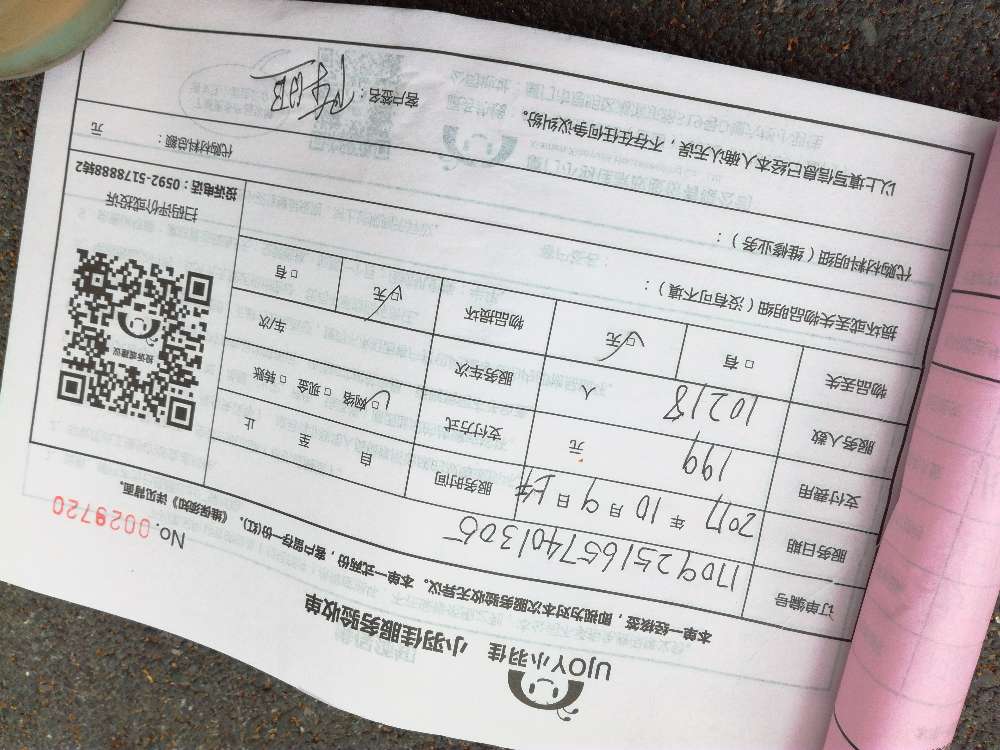 UJOY小羽佳 小羽佳服务验收单
本单一经核签，即视为对本次服务验收无异议。本单一式两份，客户留存一份(红)。《维保须知》详见背面。
No. 0029720
订单编号 17092516574013065
服务日期 2017 年 10 月 9 日 上午 服务时间 自 至 止
支付费用 199 元 支付方式 ☑网络 □现金 □转账
服务人数 10218 人 服务车次 车/次
物品丢失 □有 ☑无 物品损坏 ☑无 □有
损坏或丢失物品明细（没有可不填）：
代购材料明细（维修业务）：
代购材料总额： 元
投诉或建议
扫码评价或投诉
投诉电话：0592-5178888转2
以上填写信息已经本人确认无误，不存在任何争议纠纷。
客户签名：